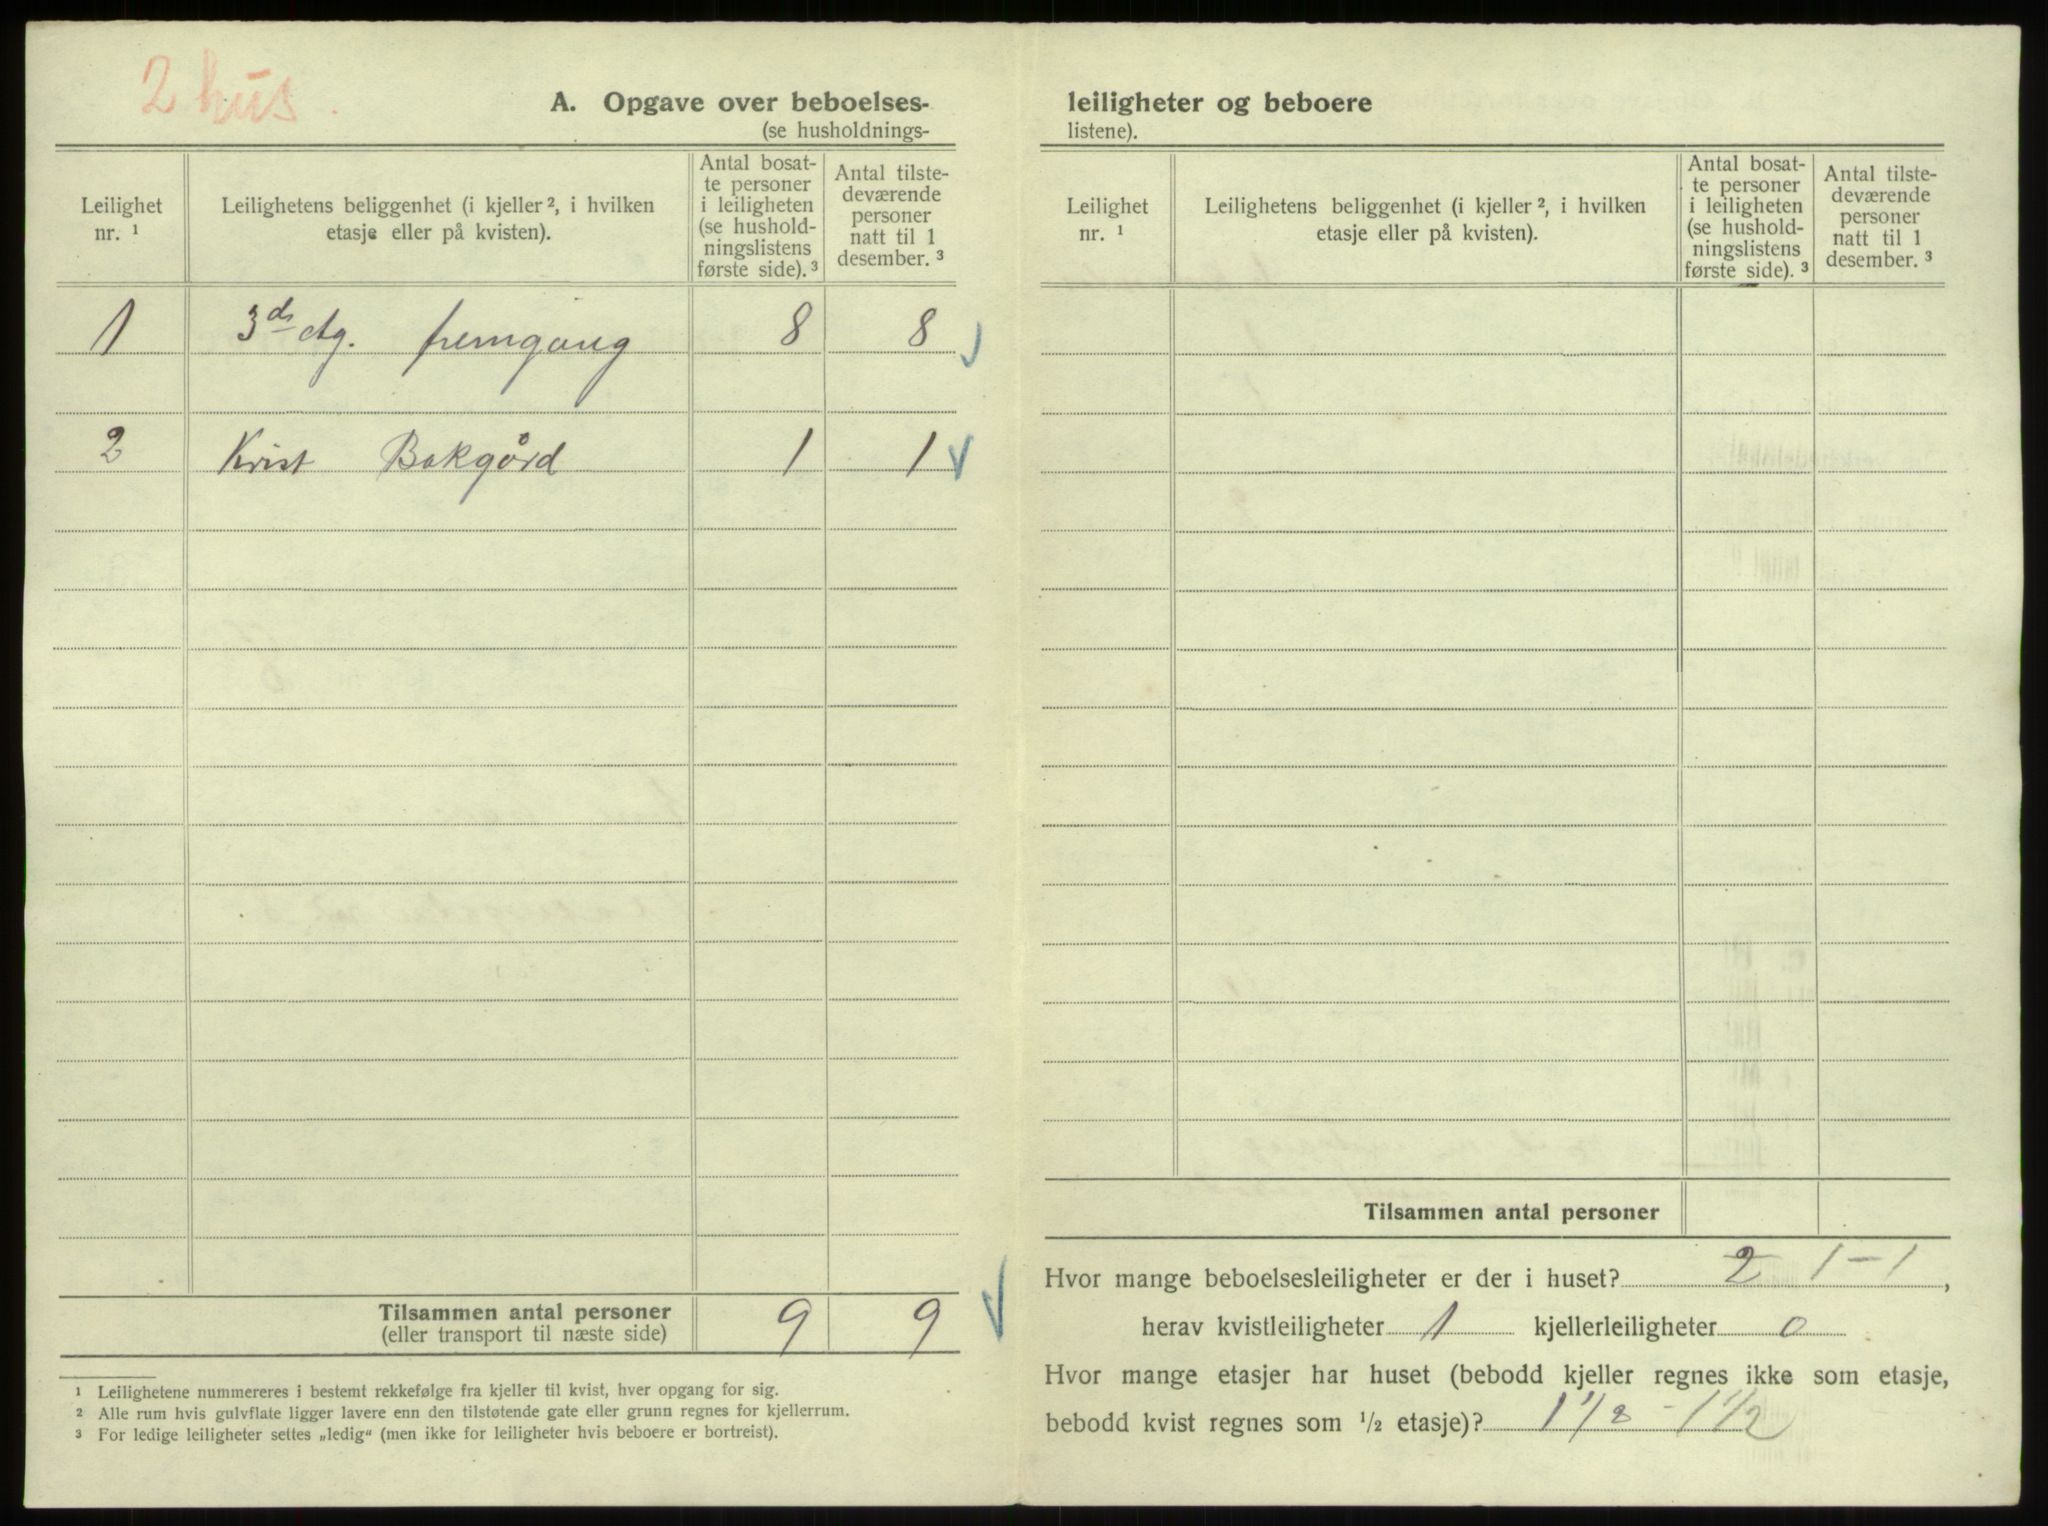 2 hus.
A. Opgave over beboelses-
(se husholdnings-
Leilighet nr. ¹
Leilighetens beliggenhet (i kjeller ², i hvilken etasje eller på kvisten).
Antal bosatte personer i leiligheten (se husholdningslistens første side). ³
Antal tilstedeværende personer natt til 1 desember. ³
1 3 etg. fremgang 8 8
2 Kvist Bakgård 1 1
Tilsammen antal personer 9 9
(eller transport til næste side)
¹ Leilighetene nummereres i bestemt rekkefølge fra kjeller til kvist, hver opgang for sig.
² Alle rum hvis gulvflate ligger lavere enn den tilstøtende gate eller grunn regnes for kjellerrum.
³ For ledige leiligheter settes „ledig“ (men ikke for leiligheter hvis beboere er bortreist).
leiligheter og beboere
listene).
Leilighet nr. ¹
Leilighetens beliggenhet (i kjeller ², i hvilken etasje eller på kvisten).
Antal bosatte personer i leiligheten (se husholdningslistens første side). ³
Antal tilstedeværende personer natt til 1 desember. ³
Tilsammen antal personer
Hvor mange beboelsesleiligheter er der i huset? 2 1 - 1,
herav kvistleiligheter 1 kjellerleiligheter 0
Hvor mange etasjer har huset (bebodd kjeller regnes ikke som etasje,
bebodd kvist regnes som ½ etasje)? - 1½